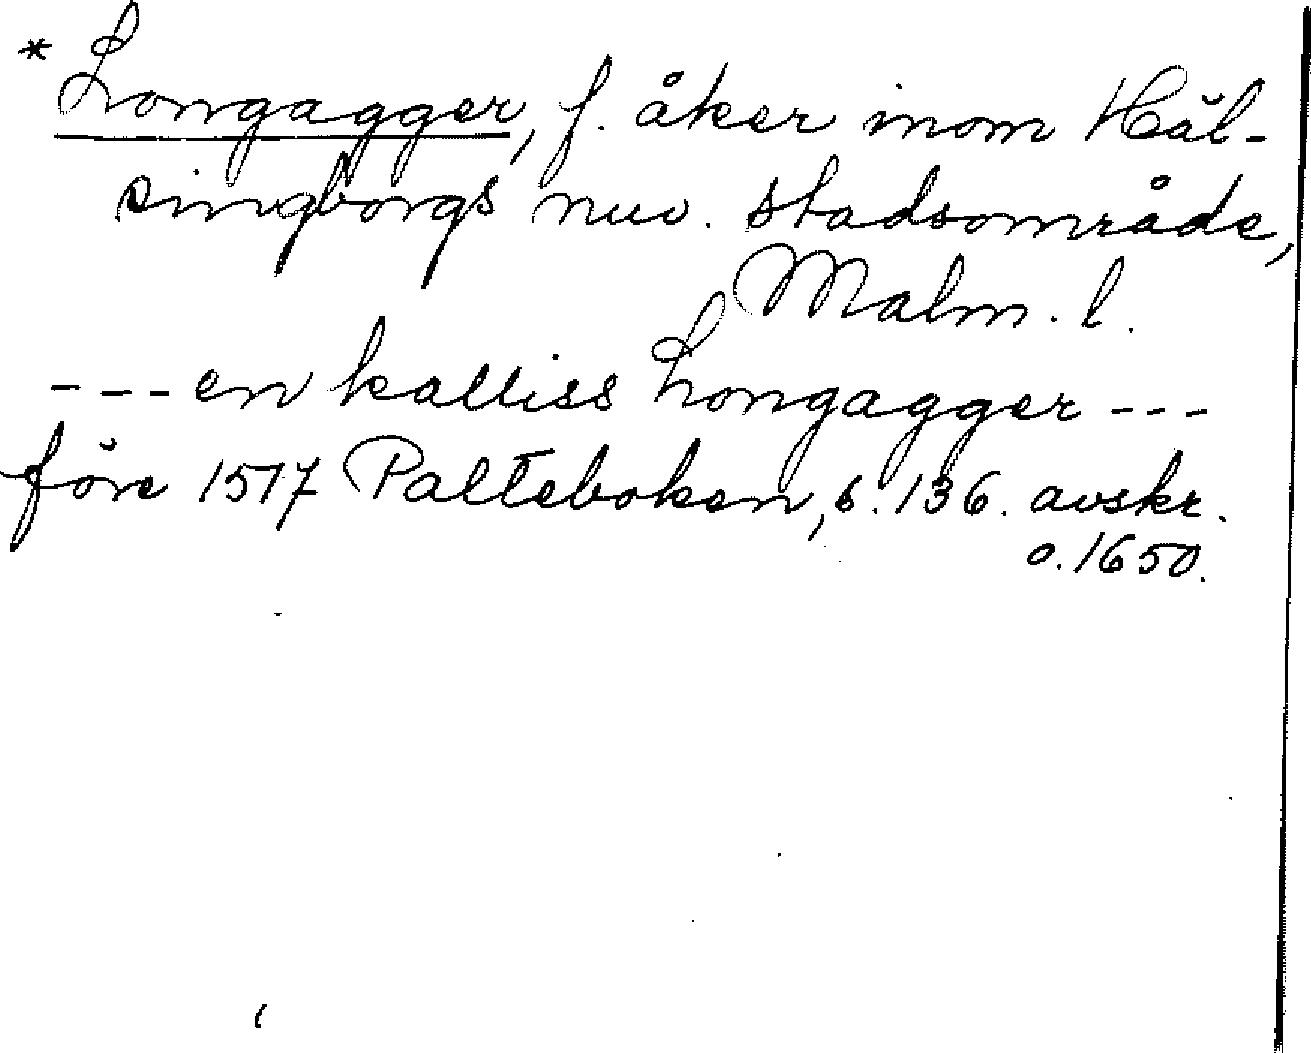 * Longagger, f. åker inom Häl-
singborgs nuv. stadsområde,
Malm. l.
--- en kalliss Longagger ---
före 1517 Palteboken, s. 136. avskr.
o. 1650.